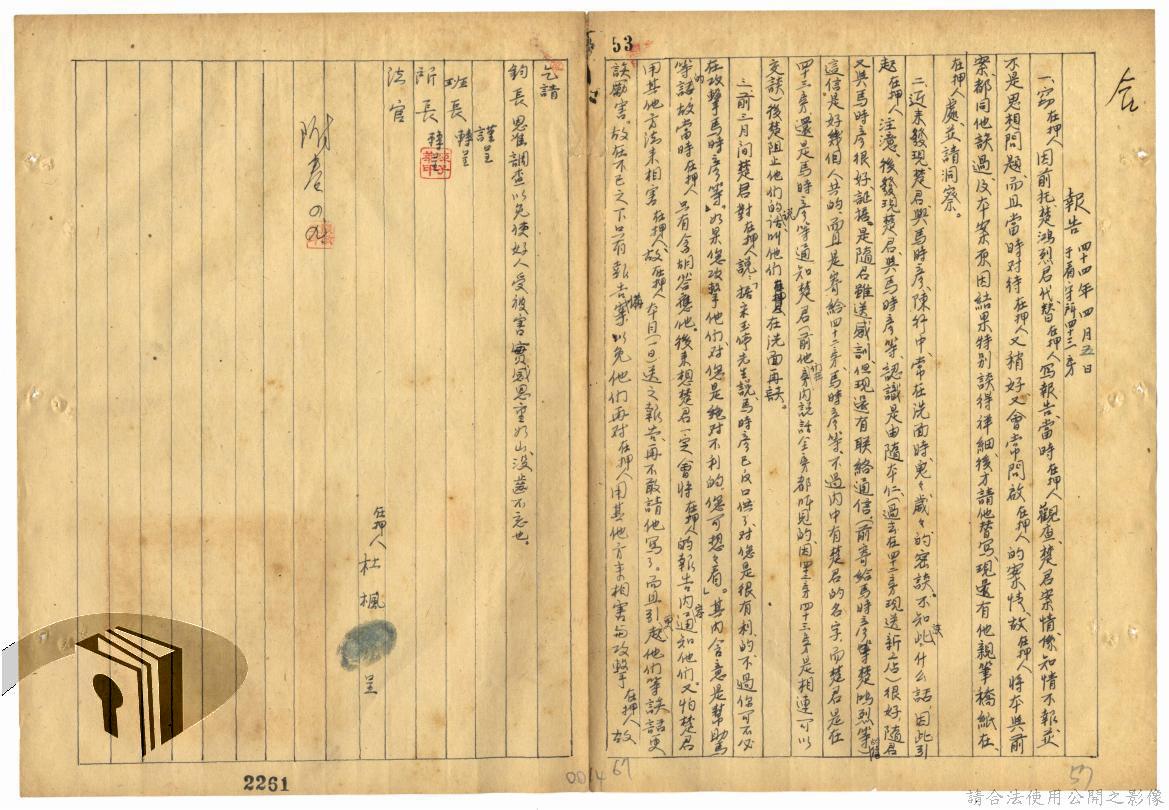 仝
53
報告 四十四年四月五日
于看守所四十三房
一、竊在押人因前托楚鴻烈君代替在押人写報告、當時在押人觀查、楚君案情係知情不報並
不是思想問題、而且當時对待在押人又稍好又會常問啟在押人的案情、故在押人將本與前
案、都同他談過及本案原因結果特別談得祥細後才請他替寫、現還有他親筆稿紙在、
在押人處並請洞察。
二、近來發現楚君與馬時彥、陳行中、常在洗面時、鬼々歲々的密談、不知此什么話、因此引
起在押人注意、後發現楚君與馬時彥等、認識是由隨本仁(過去在四二房現送新店)很好、隨君
又與馬時彥很好証據。是隨君雖送感訓、但現還有联絡通信、(前寄給馬時彥、等楚鴻烈等)
這信是好幾個人共的、而且是寄給四十二房、馬時彥等、不過內中有楚君的名字、而楚君是在
四十三房還是馬時彥、等通知楚君(前他們在房內説話全房都听見的、因四二房四十三房是相連可以
交談)後楚阻止他們的説話、叫他們在洗面再談。
三、前三月間楚君對在押人説、「据宋玉佛先生説、馬時彥已反口供了、对您是很有利的、不過你可不必
在攻擊馬時彥等。如果您攻擊他們、对您是絕对不利的、您可想々看」。其內含意是幫助馬
等語故當時在押人只有含胡答應他。後來想楚君一定會將在押人的報告內容通知他們、又怕楚君
用其他方法來相害在押人、故在押人本月(一日)送之報告、再不敢請他寫了。而且引起他們等談話更
談勵害。故在不已之下只有報告備案、以免他們再对在押人用其他方法來相害與攻擊在押人故
乞請
鈞長恩准調查以免使好人受被害實感恩重如山、沒齒不忘也。
謹呈
班長 轉呈
所長 轉呈
法官
在押人 杜楓 呈
附卷
2261
0014
67
57
請合法使用公開之影像